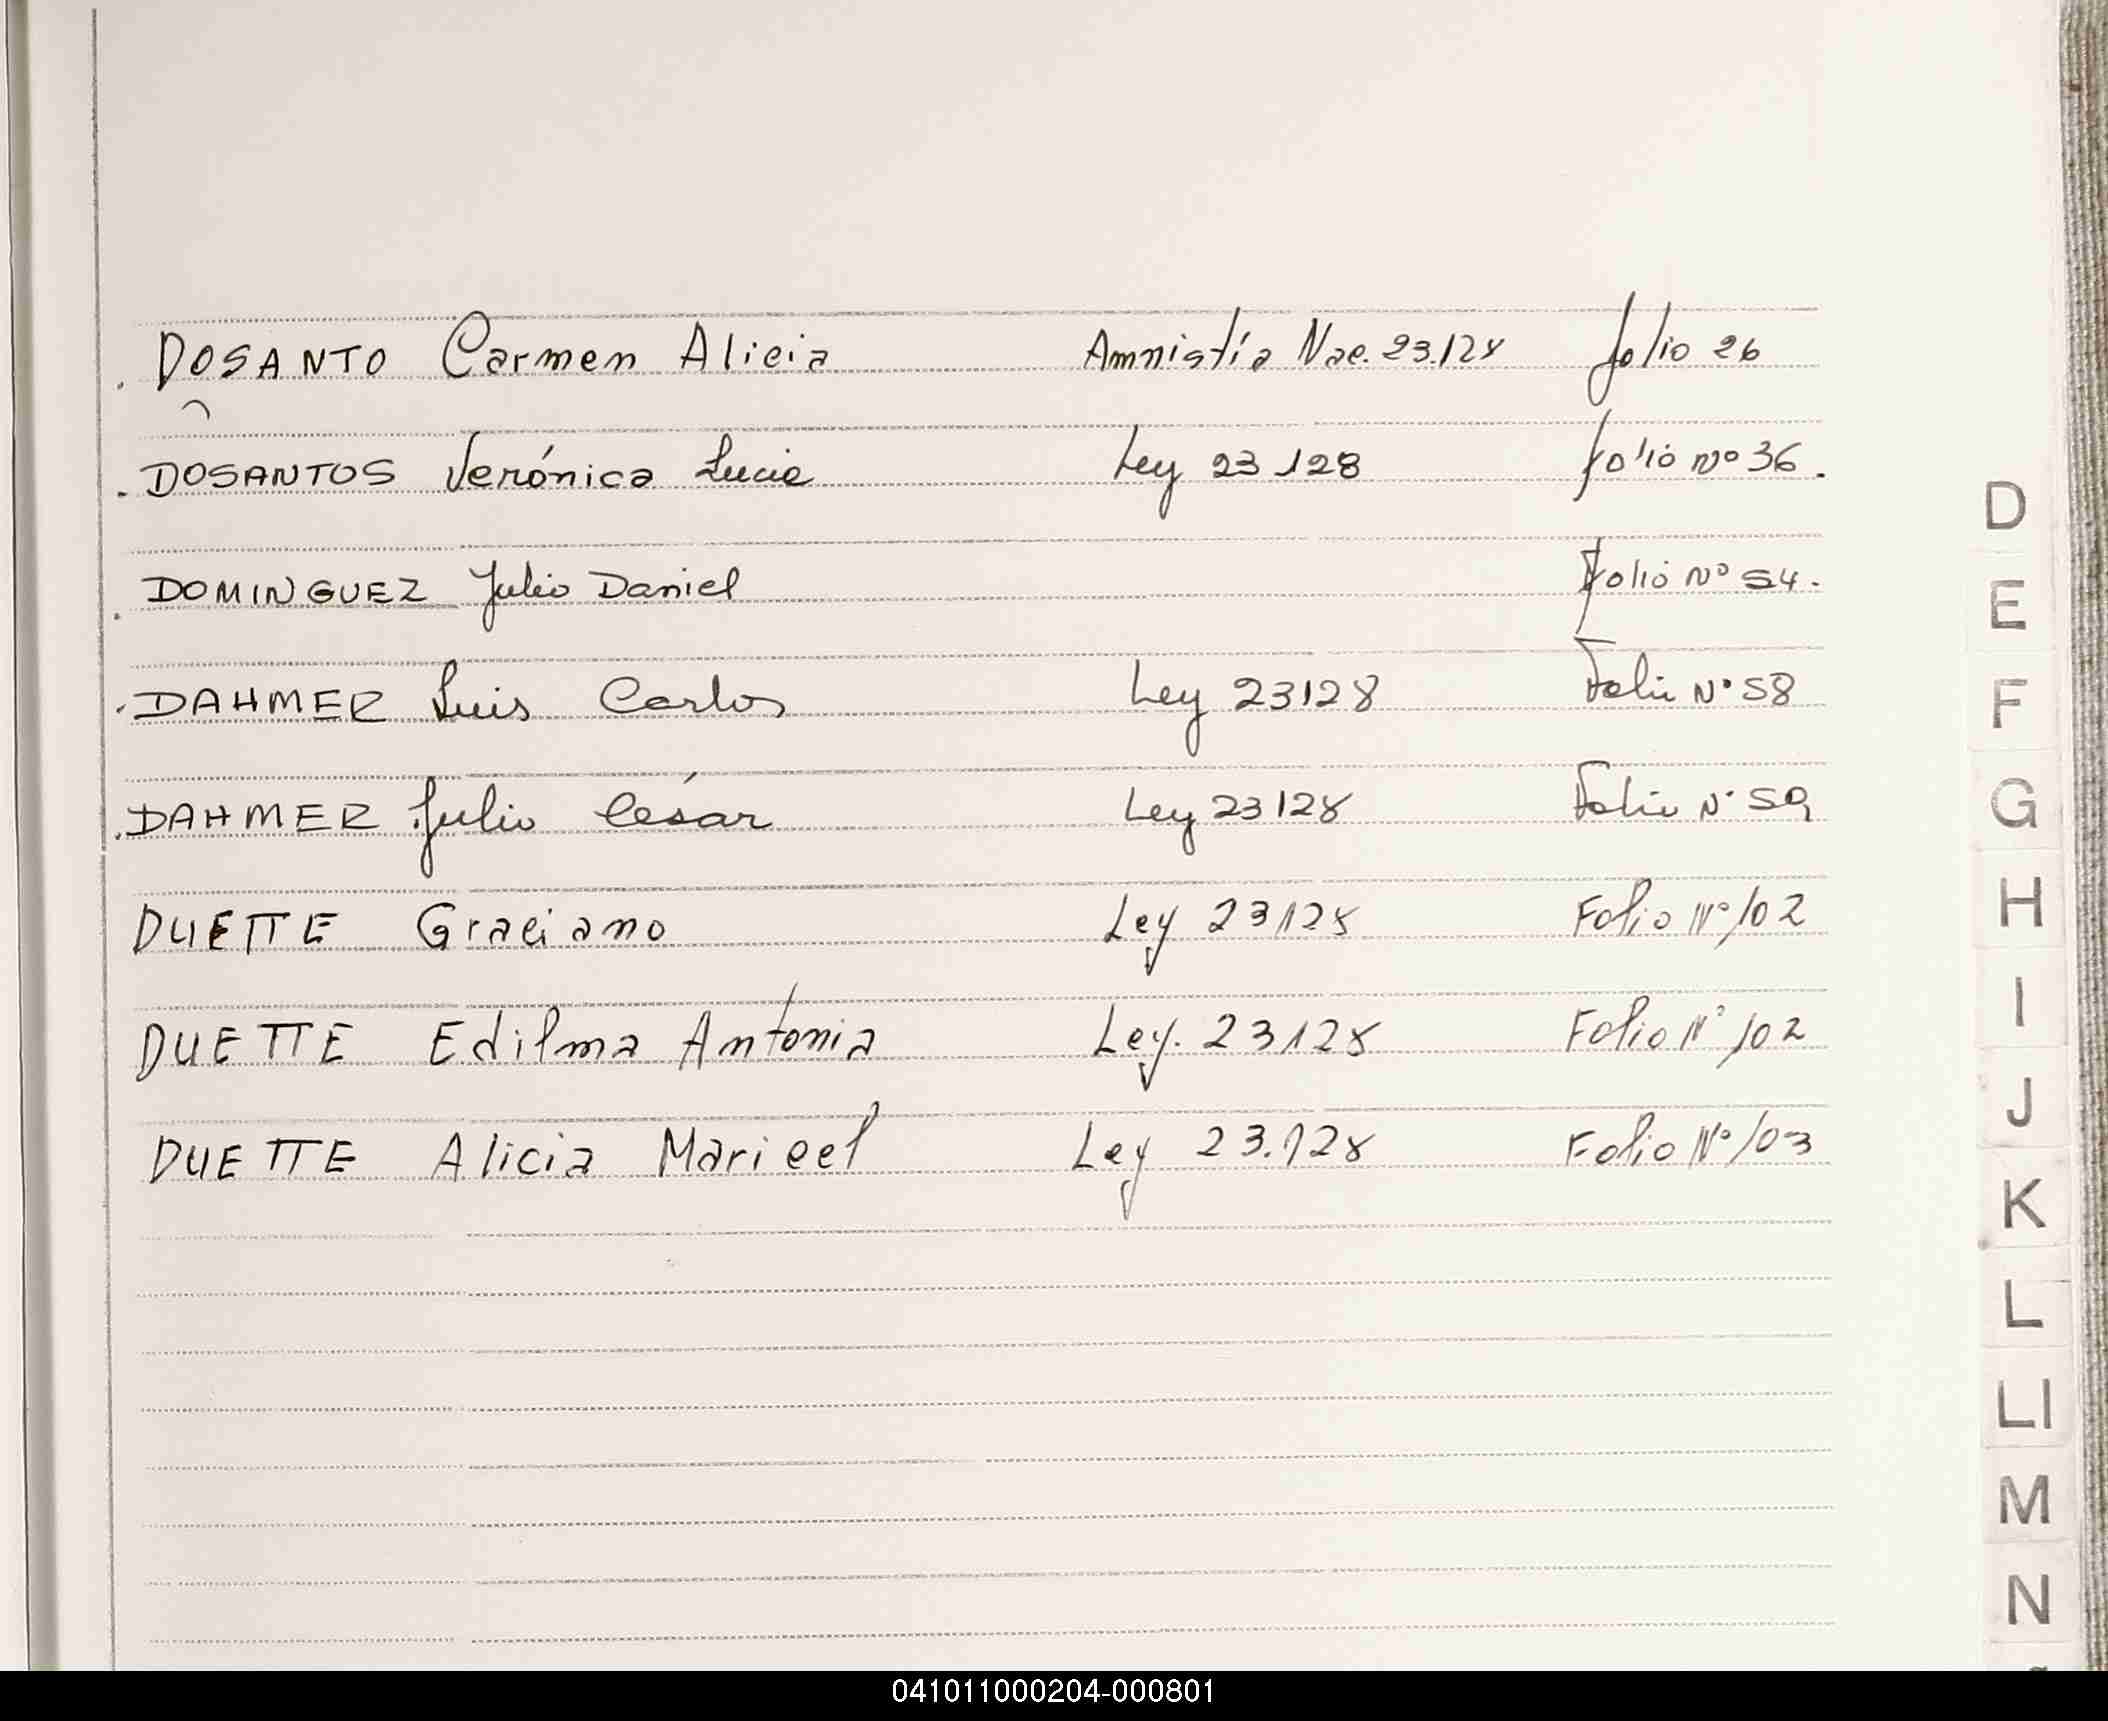 DOSANTO Carmen Alicia Amnistía Nac. 23.128 folio 26
DOSANTOS Verónica Lucia Ley 23128 folio Nº 36.
DOMINGUEZ Julio Daniel Folio Nº 54.
DAHMER Luis Carlos Ley 23128 Folio Nº 58
DAHMER Julio César Ley 23128 Folio Nº 59
DUETTE Graciano Ley 23128 Folio Nº 102
DUETTE Edilma Antonia Ley. 23128 Folio Nº 102
DUETTE Alicia Maricel Ley 23.128 Folio Nº 103
D
E
F
G
H
I
J
K
L
Ll
M
N
041011000204-000801